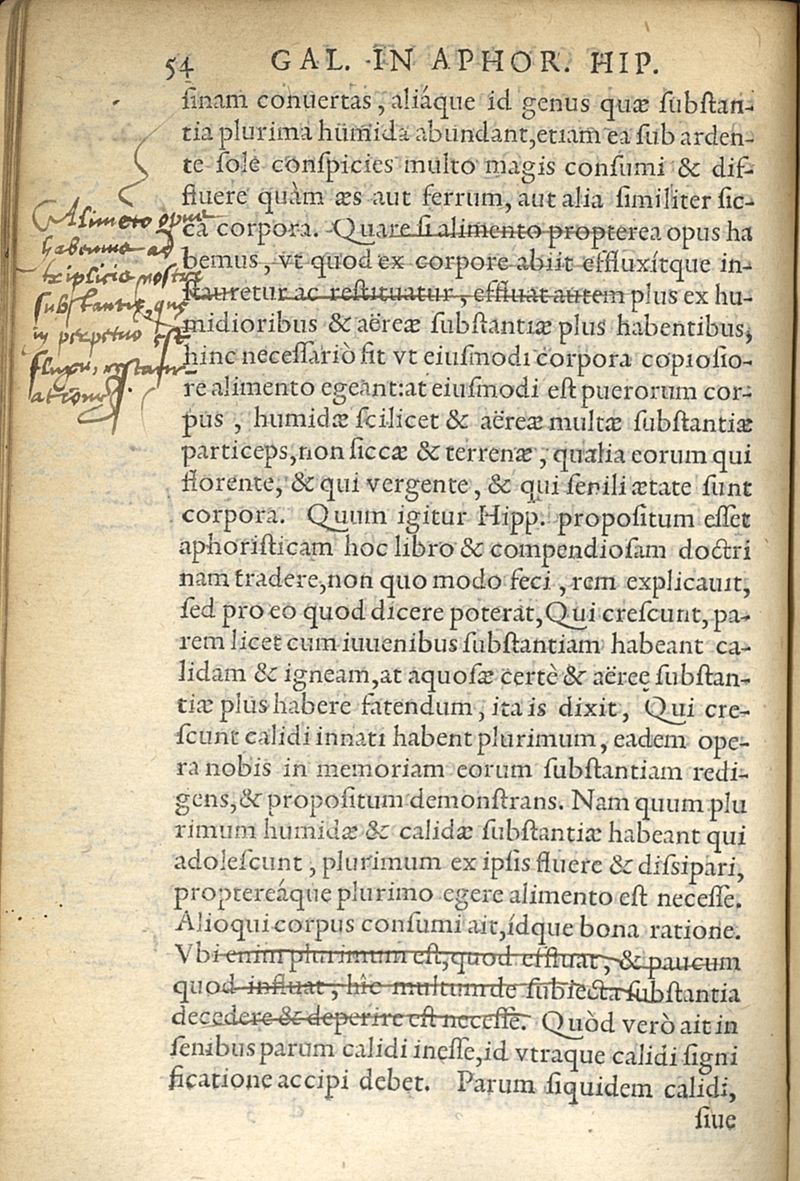 54 GAL. IN APHOR. HIP.
sinam conuertas, aliáque id genus quæ substan-
tia plurima humida abundant, etiam ea sub arden-
te sole conspicies multo magis consumi & dif-
fluere quàm æs aut ferrum, aut alia similiter sic-
ca corpora. Quare si alimento propterea opus ha
bemus, vt quod ex corpore abiit effluxítque in-
stauretur ac restituatur, effluat autem plus ex hu-
midioribus & aëreæ substantiæ plus habentibus,
hinc necessariò fit vt eiusmodi corpora copiosio-
re alimento egeant: at eiusmodi est puerorum cor-
pus, humidæ scilicet & aëreæ multæ substantiæ
particeps, non siccæ & terrenæ, qualia eorum qui
florente, & qui vergente, & qui senili ætate sunt
corpora. Quum igitur Hipp. propositum esset
aphoristicam hoc libro & compendiosam doctri
nam tradere, non quo modo feci, rem explicauit,
sed pro eo quod dicere poterat, Qui crescunt, pa-
rem licet cum iuuenibus substantiam habeant ca-
lidam & igneam, at aquosæ certè & aëreę substan-
tiæ plus habere fatendum, ita is dixit, Qui cre-
scunt calidi innati habent plurimum, eadem ope-
ra nobis in memoriam eorum substantiam redi-
gens, & propositum demonstrans. Nam quum plu
rimum humidæ & calidæ substantiæ habeant qui
adolescunt, plurimum ex ipsis fluere & dissipari,
proptereáque plurimo egere alimento est necesse.
Alioqui corpus consumi ait, ídque bona ratione.
Vbi enim plurimum est, quod effluat, & paucum
quod influat, hîc multum de subiecta substantia
decedere & deperire est necesse. Quòd verò ait in
senibus parum calidi inesse, id vtraque calidi signi
ficatione accipi debet. Parum siquidem calidi,
siue
Alimento opus
habemus ad
substantiæ, quæ
in perpetuo est
fluxu,